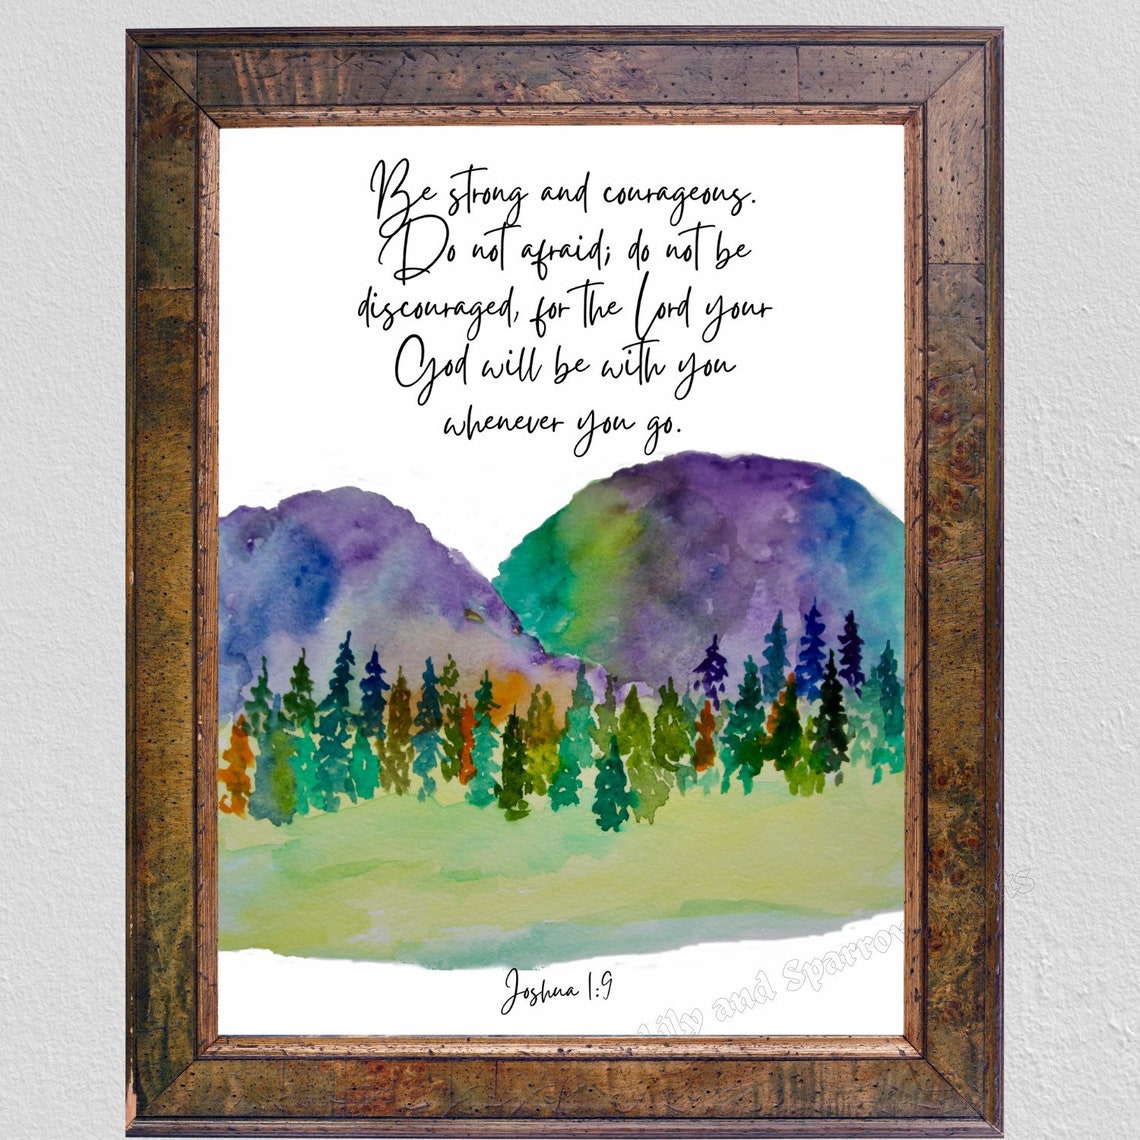 Be strong and courageous.
Do not afraid; do not be
discouraged, for the Lord your
God will be with you
whenever you go.
Joshua 1:9
Lily and Sparrow